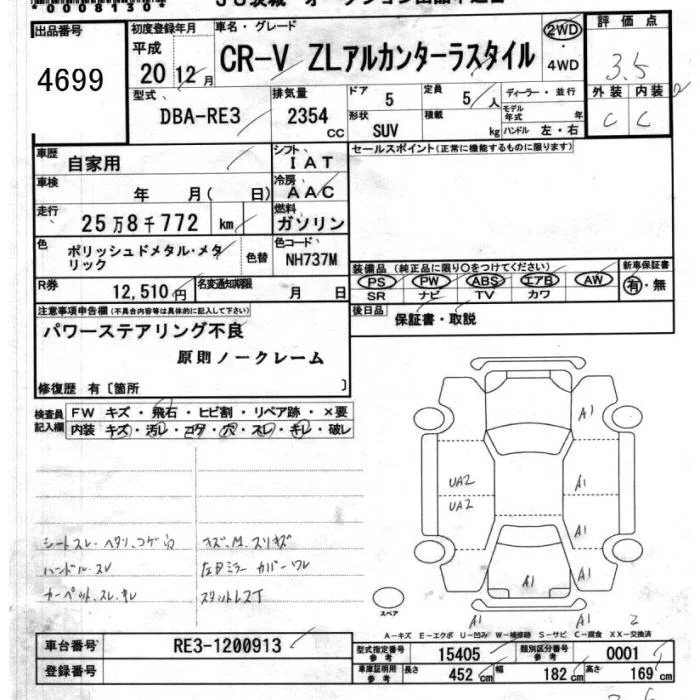 *0008130*
出品番号
4699
初度登録年月
平成
20 12月
車名・グレード
CR-V ZLアルカンターラスタイル
2WD
・
4WD
評価点
3.5
外装 内装
C C
型式
DBA-RE3
排気量
2354
CC
ドア 5
定員 5人
形状
SUV
積載 kg
ディーラー・並行
モデル年式 年
ハンドル 左・右
車歴
自家用
シフト
IAT
セールスポイント(正常に機能するものに限ります)
車検
年 月( 日)
冷房
AAC
走行
25万8千772 km
燃料
ガソリン
色
ポリッシュドメタル・メタリック
色替
色コード
NH737M
装備品(純正品に限り○をつけてください)
PS PW ABS エアB AW
SR ナビ TV カワ
新車保証書
有・無
R券
12,510円
名変通知期限
月 日
後日品
保証書・取説
注意事項申告欄(不具合内容等は具体的に記入して下さい)
パワーステアリング不良
原則ノークレーム
修復歴 有〔箇所 〕
検査員記入欄
FW キズ・飛石・ヒビ割・リペア跡・×要
内装 キズ・汚レ・コゲ・穴・スレ・キレ・破レ
A1
UA2 A1
UA2
A1
A1 A1
A1 A1 2
シートスレ・ヘタリ、コゲ穴
ハンドル・スレ
カーペット、スレ、キレ
キズ、M、スリキズ
左Dミラーカバーワレ
スタットレスT
スペア
A-キズ E-エクボ U-凹み W-補修跡 S-サビ C-腐食 XX-交換済
車台番号
RE3-1200913
登録番号
型式指定番号 参考
15405
類別区分番号 参考
0001
車庫証明用 参考
長さ 452 cm
幅 182 cm
高さ 169 cm